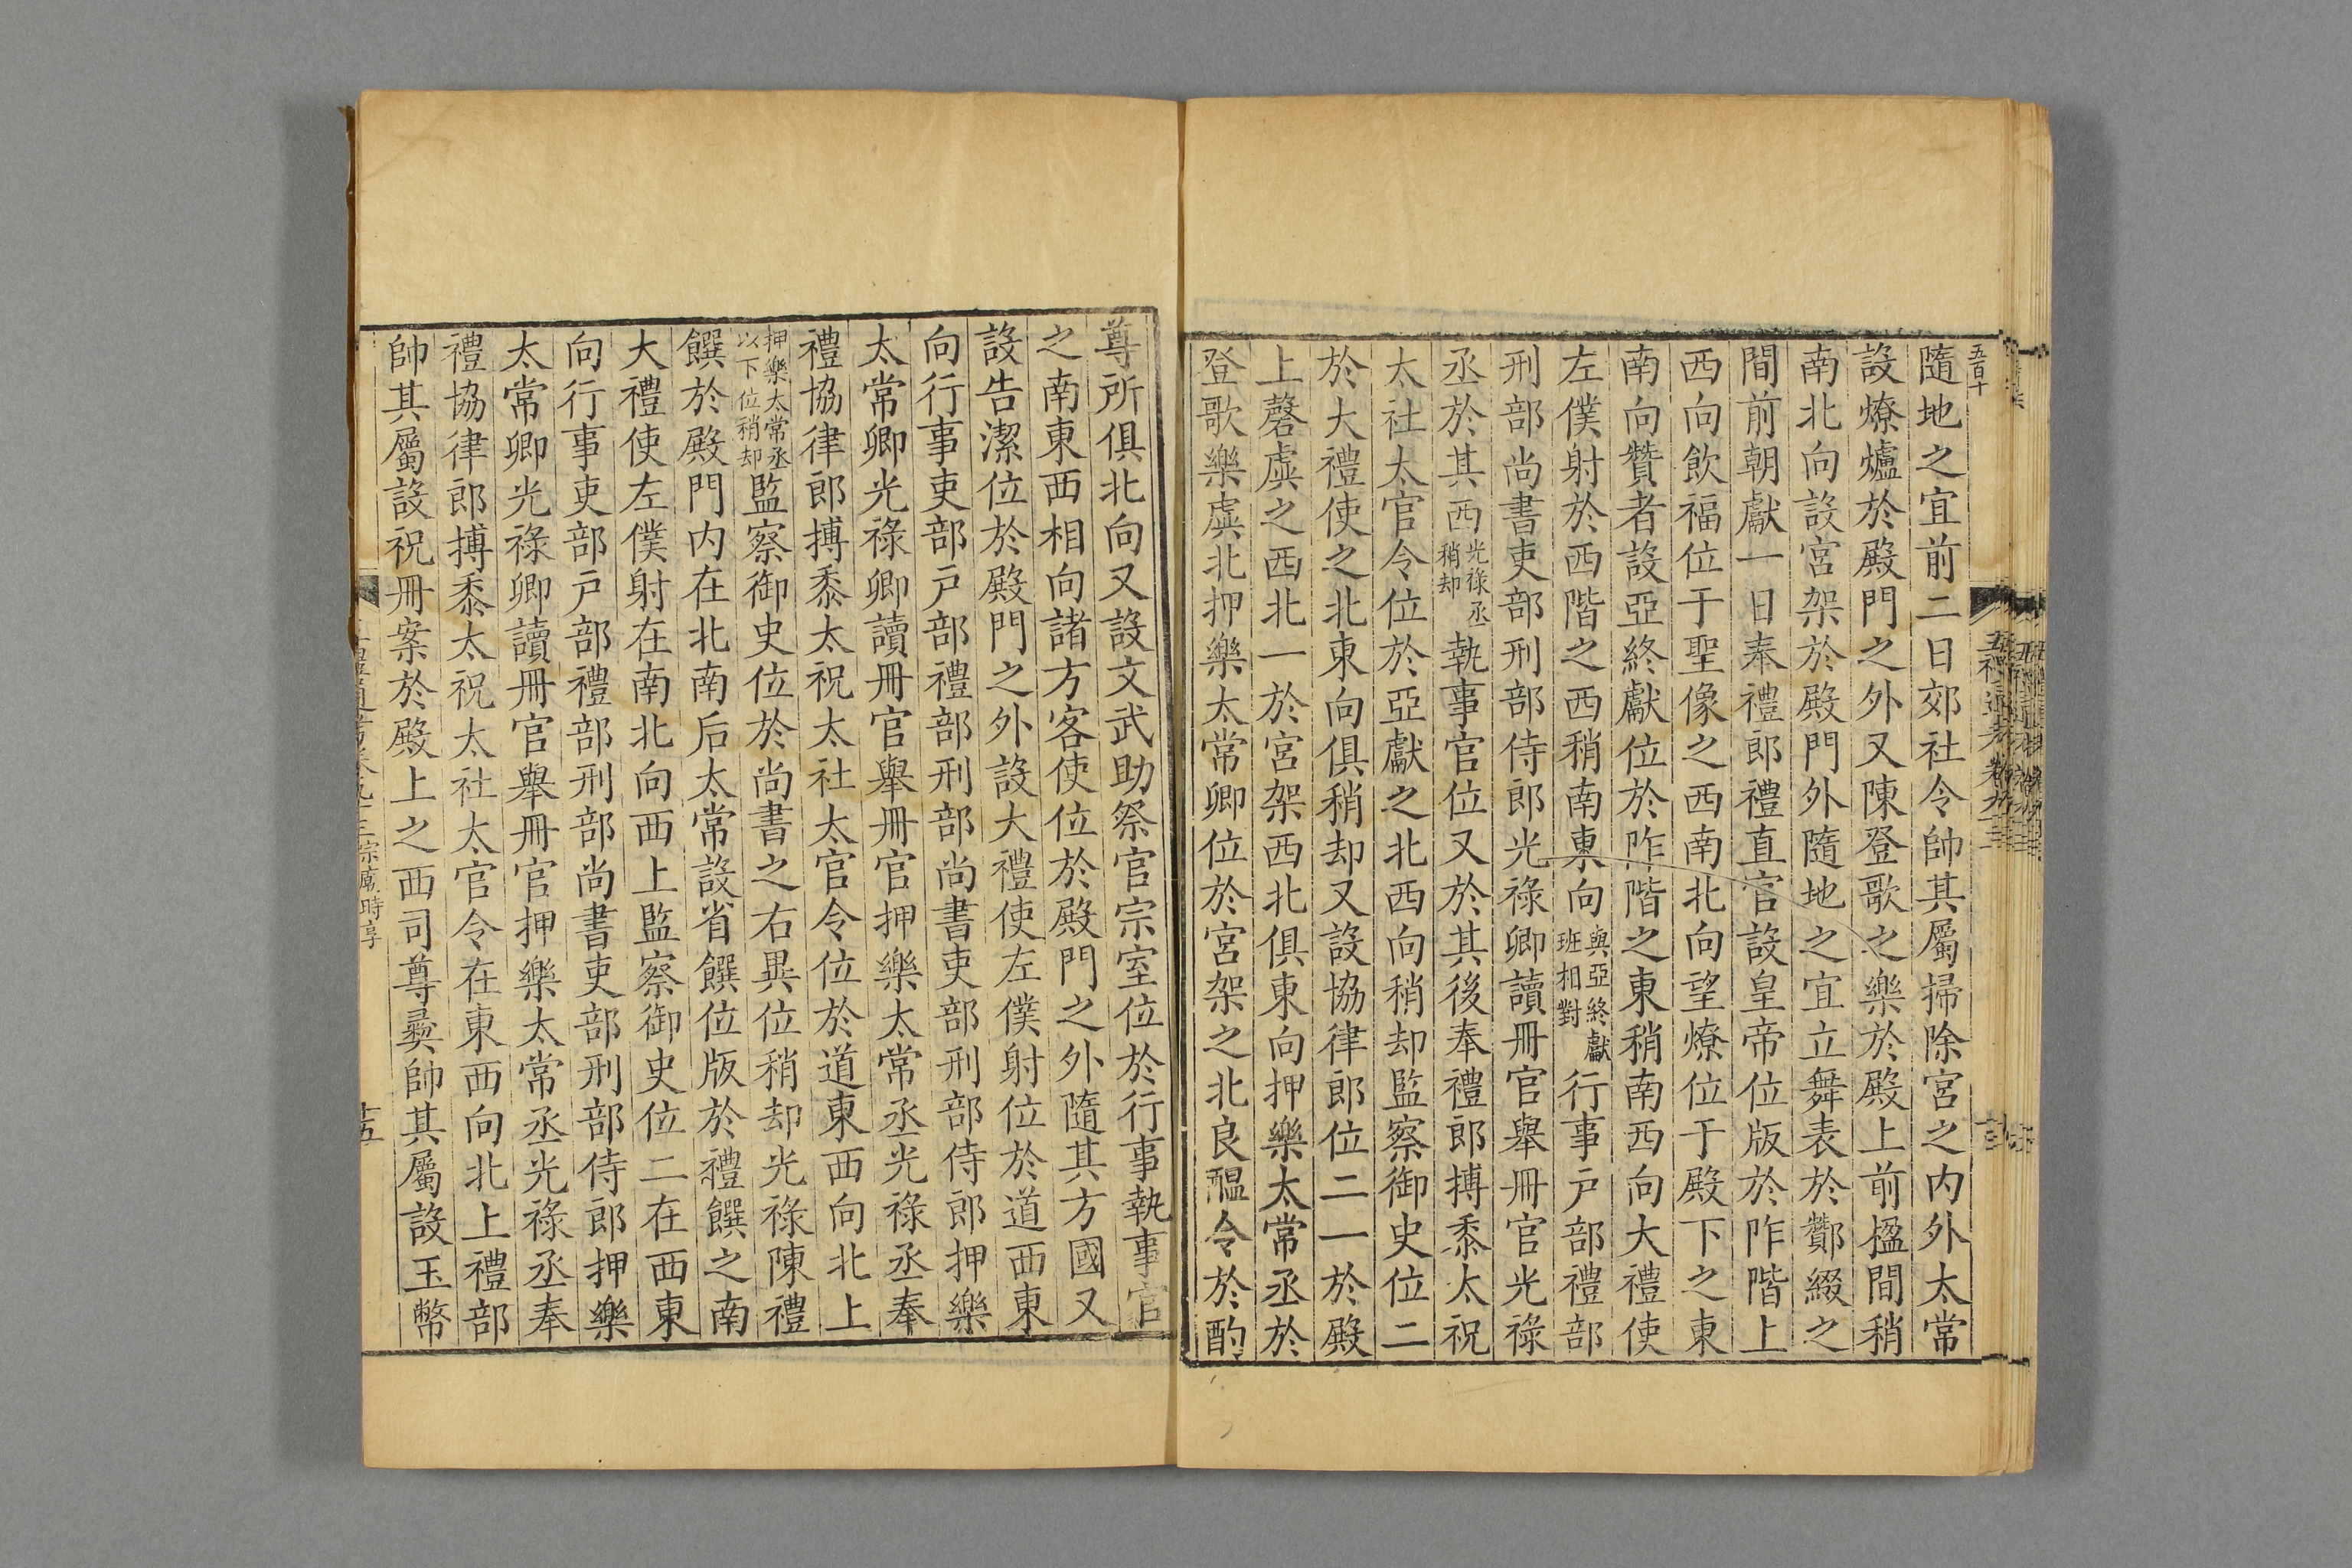 五百十
隨地之宜前二日郊社令帥其屬掃除宮之内外太常
設燎爐於殿門之外又陳登歌之樂於殿上前楹間稍
南北向設宮架於殿門外隨地之宜立舞表於酇綴之
間前朝獻一日奉禮郎禮直官設皇帝位版於阼階上
西向飲福位于聖像之西南北向望燎位于殿下之東
南向贊者設亞終獻位於阼階之東稍南西向大禮使
左僕射於西階之西稍南東向與亞終獻班相對行事戶部禮部
刑部尚書吏部刑部侍郎光祿卿讀冊官舉冊官光祿
丞於其西光祿丞稍却執事官位又於其後奉禮郎搏黍太祝
太社太官令位於亞獻之北西向稍却監察御史位二
於大禮使之北東向俱稍却又設協律郎位二一於殿
上磬虡之西北一於宮架西北俱東向押樂太常丞於
登歌樂虡北押樂太常卿位於宮架之北良醞令於酌
尊所俱北向又設文武助祭官宗室位於行事執事官
之南東西相向諸方客使位於殿門之外隨其方國又
設告潔位於殿門之外設大禮使左僕射位於道西東
向行事吏部戶部禮部刑部尚書吏部刑部侍郎押樂
太常卿光祿卿讀冊官舉冊官押樂太常丞光祿丞奉
禮協律郎搏黍太祝太社太官令位於道東西向北上
押樂太常丞以下位稍却監察御史位於尚書之右異位稍却光祿陳禮
饌於殿門内在北南后太常設省饌位版於禮饌之南
大禮使左僕射在南北向西上監察御史位二在西東
向行事吏部戶部禮部刑部尚書吏部刑部侍郎押樂
太常卿光祿卿讀冊官舉冊官押樂太常丞光祿丞奉
禮協律郎搏黍太祝太社太官令在東西向北上禮部
帥其屬設祝冊案於殿上之西司尊彝帥其屬設玉幣
宗廟時享
十五